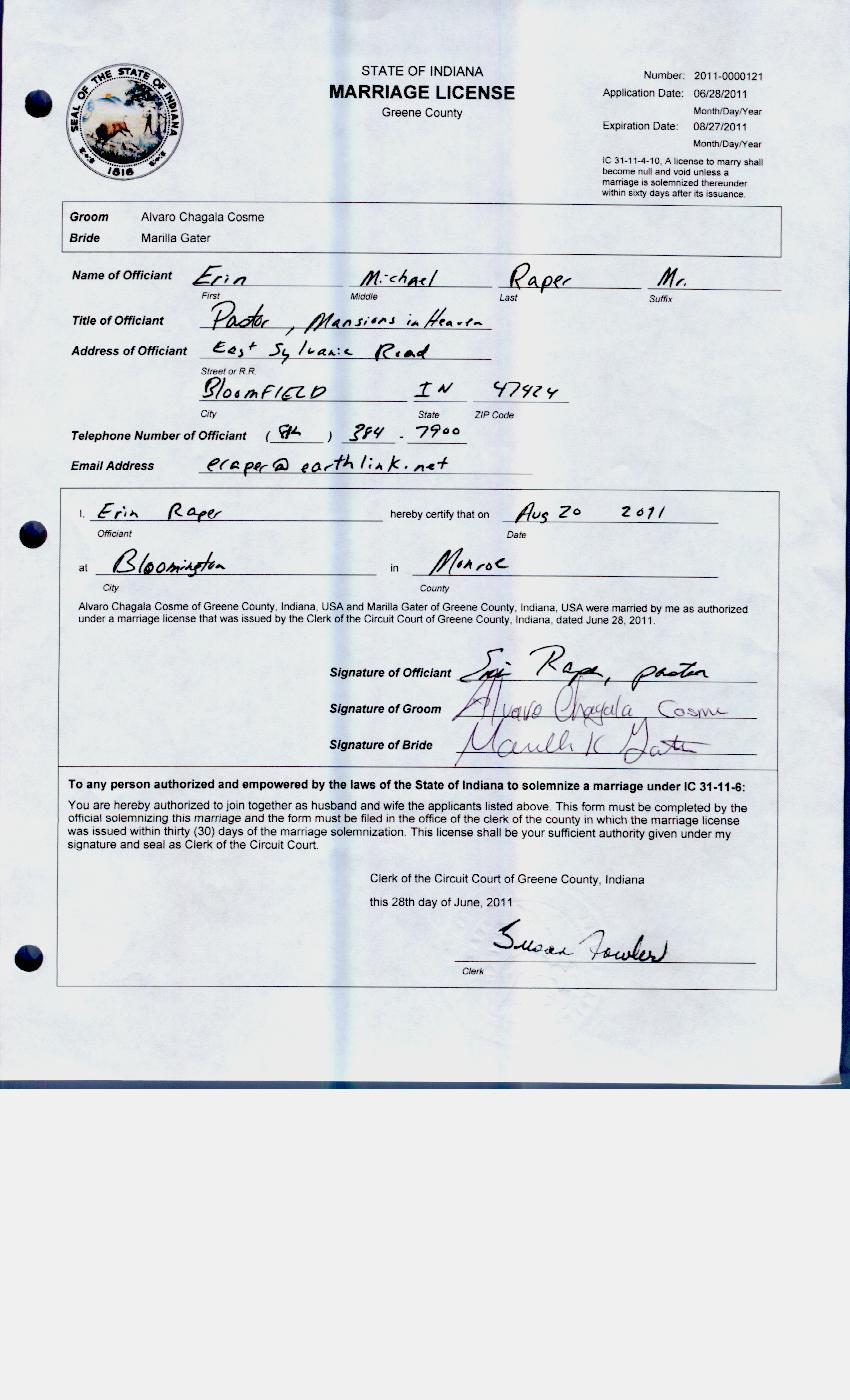 SEAL OF THE STATE OF INDIANA
1816
STATE OF INDIANA
MARRIAGE LICENSE
Greene County
Number: 2011-0000121
Application Date: 06/28/2011
Month/Day/Year
Expiration Date: 08/27/2011
Month/Day/Year
IC 31-11-4-10, A license to marry shall
become null and void unless a
marriage is solemnized thereunder
within sixty days after its issuance.
Groom Alvaro Chagala Cosme
Bride Marilla Gater
Name of Officiant Erin Michael Raper Mr.
First Middle Last Suffix
Title of Officiant Pastor, Mansions in Heaven
Address of Officiant East Sylvania Road
Street or R.R.
BloomFIELD IN 47424
City State ZIP Code
Telephone Number of Officiant ( ) 384 - 7900
Email Address eraper@earthlink.net
I, Erin Raper hereby certify that on Aug 20 2011
Officiant Date
at Bloomington in Monroe
City County
Alvaro Chagala Cosme of Greene County, Indiana, USA and Marilla Gater of Greene County, Indiana, USA were married by me as authorized
under a marriage license that was issued by the Clerk of the Circuit Court of Greene County, Indiana, dated June 28, 2011.
Signature of Officiant Erin Raper, pastor
Signature of Groom Alvaro Chagala Cosme
Signature of Bride Marilla K Gater
To any person authorized and empowered by the laws of the State of Indiana to solemnize a marriage under IC 31-11-6:
You are hereby authorized to join together as husband and wife the applicants listed above. This form must be completed by the
official solemnizing this marriage and the form must be filed in the office of the clerk of the county in which the marriage license
was issued within thirty (30) days of the marriage solemnization. This license shall be your sufficient authority given under my
signature and seal as Clerk of the Circuit Court.
Clerk of the Circuit Court of Greene County, Indiana
this 28th day of June, 2011
Susan Fowler
Clerk